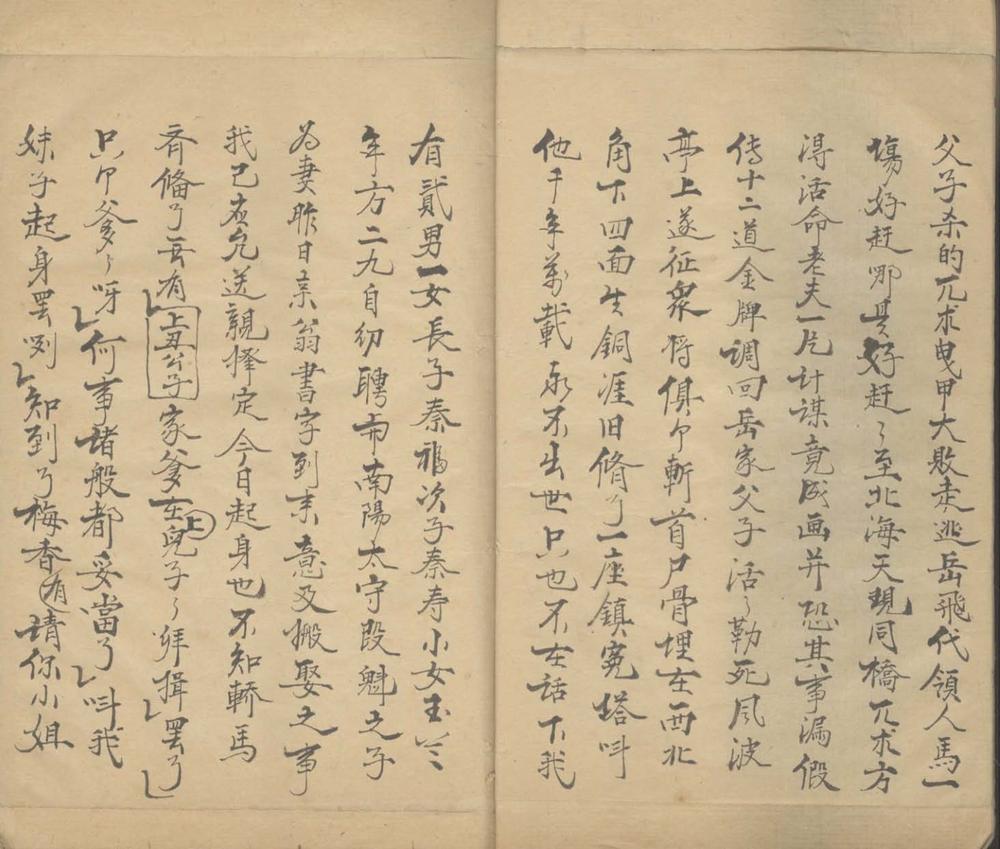 父子杀的兀求曳甲大败走逃岳飛代領人馬一
塲好赶哪其好赶〻至北海天現同橋兀求方
淂活命老夫一片计謀竟成画并恐其事漏假
传十二道金牌調回岳家父子活〻勒死风波
亭上遂征衆将俱卩斬首尸骨埋在西北
角下四面生銅涯旧脩了一座鎮寃塔叫
他千年萬載永不出世只也不在話下我
有貳男一女長子秦福次子秦寿小女玉兰
年方二九自纫聘南陽太守段魁之子
为妻昨日亲翁書字到来意及搬娶之事
我已应允送親擇定今日起身也不知轎馬
斉偹了無有上丑公子家爹在上児子〻拜揖罢了
只卩爹〻呀何事诸般都妥當了叫我
妹子起身罢咧知到了梅香有请你小姐